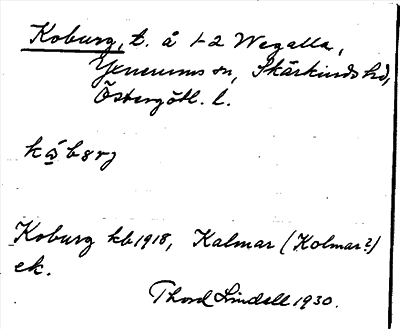 Koburg, t. å 1-2 Wegalla,
Yxnerums sn, Skärkinds hd,
Östergötl. l.
Koburg kb 1918, Kalmar (Kolmar?)
ek.
Thord Lindell 1930.